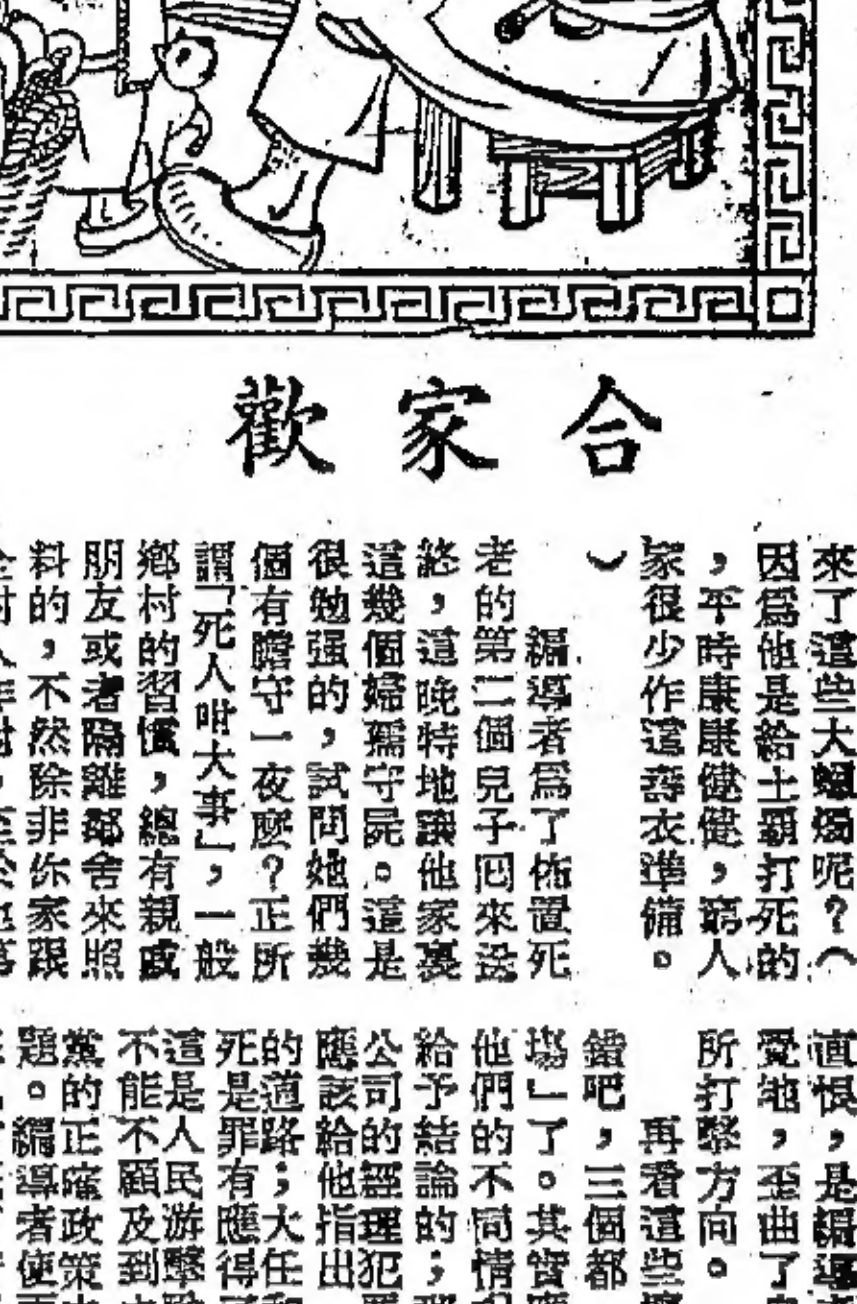 合家歡
來了這些大蠟燭呢？（
因為他是給土霸打死的
，平時康康健健，窮人
家很少作這壽衣準備。
）
編導者為了佈置死
老的第二個兒子囘來送
終，這晚特地讓他家裏
這幾個婦孺守屍。這是
很勉强的，試問她們幾
個有膽守一夜麽？正所
謂「死人咁大事」，一般
鄉村的習慣，總有親戚
朋友或者隔離鄰舍來照
料的，不然除非你家跟
直恨，是編導
覺地，歪曲了
所打擊方向。
再看這些
錯吧，三個都
塲」了。其實
他們的不同情
給予結論的；
公司的經理犯
應該給他指出
的道路；大任
死是罪有應得
這是人民游擊
不能不顧及到
黨的正確政策
題。編導者使